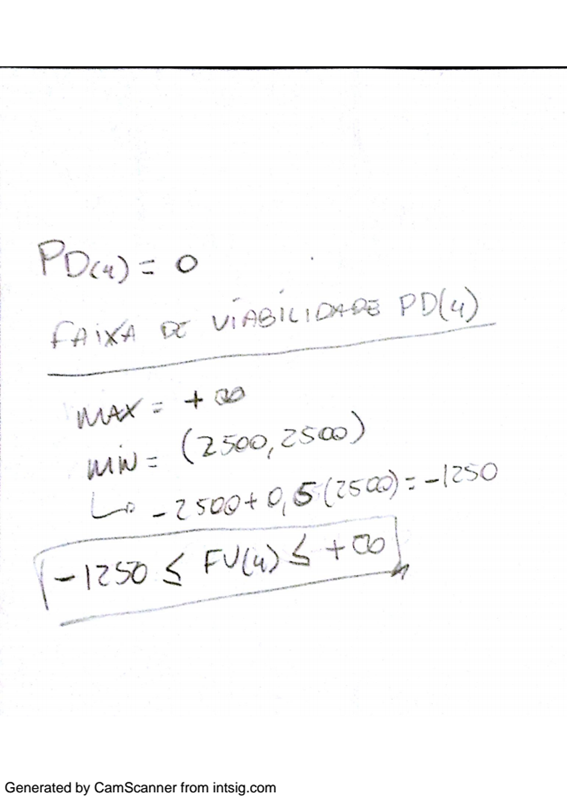 PD(4) = 0
FAIXA DE VIABILIDADE PD(4)
MAX = + ∞
MIN = (2500, 2500)
↳ - 2500 + 0,5 (2500) = -1250
-1250 ≤ FV(4) ≤ +∞
Generated by CamScanner from intsig.com